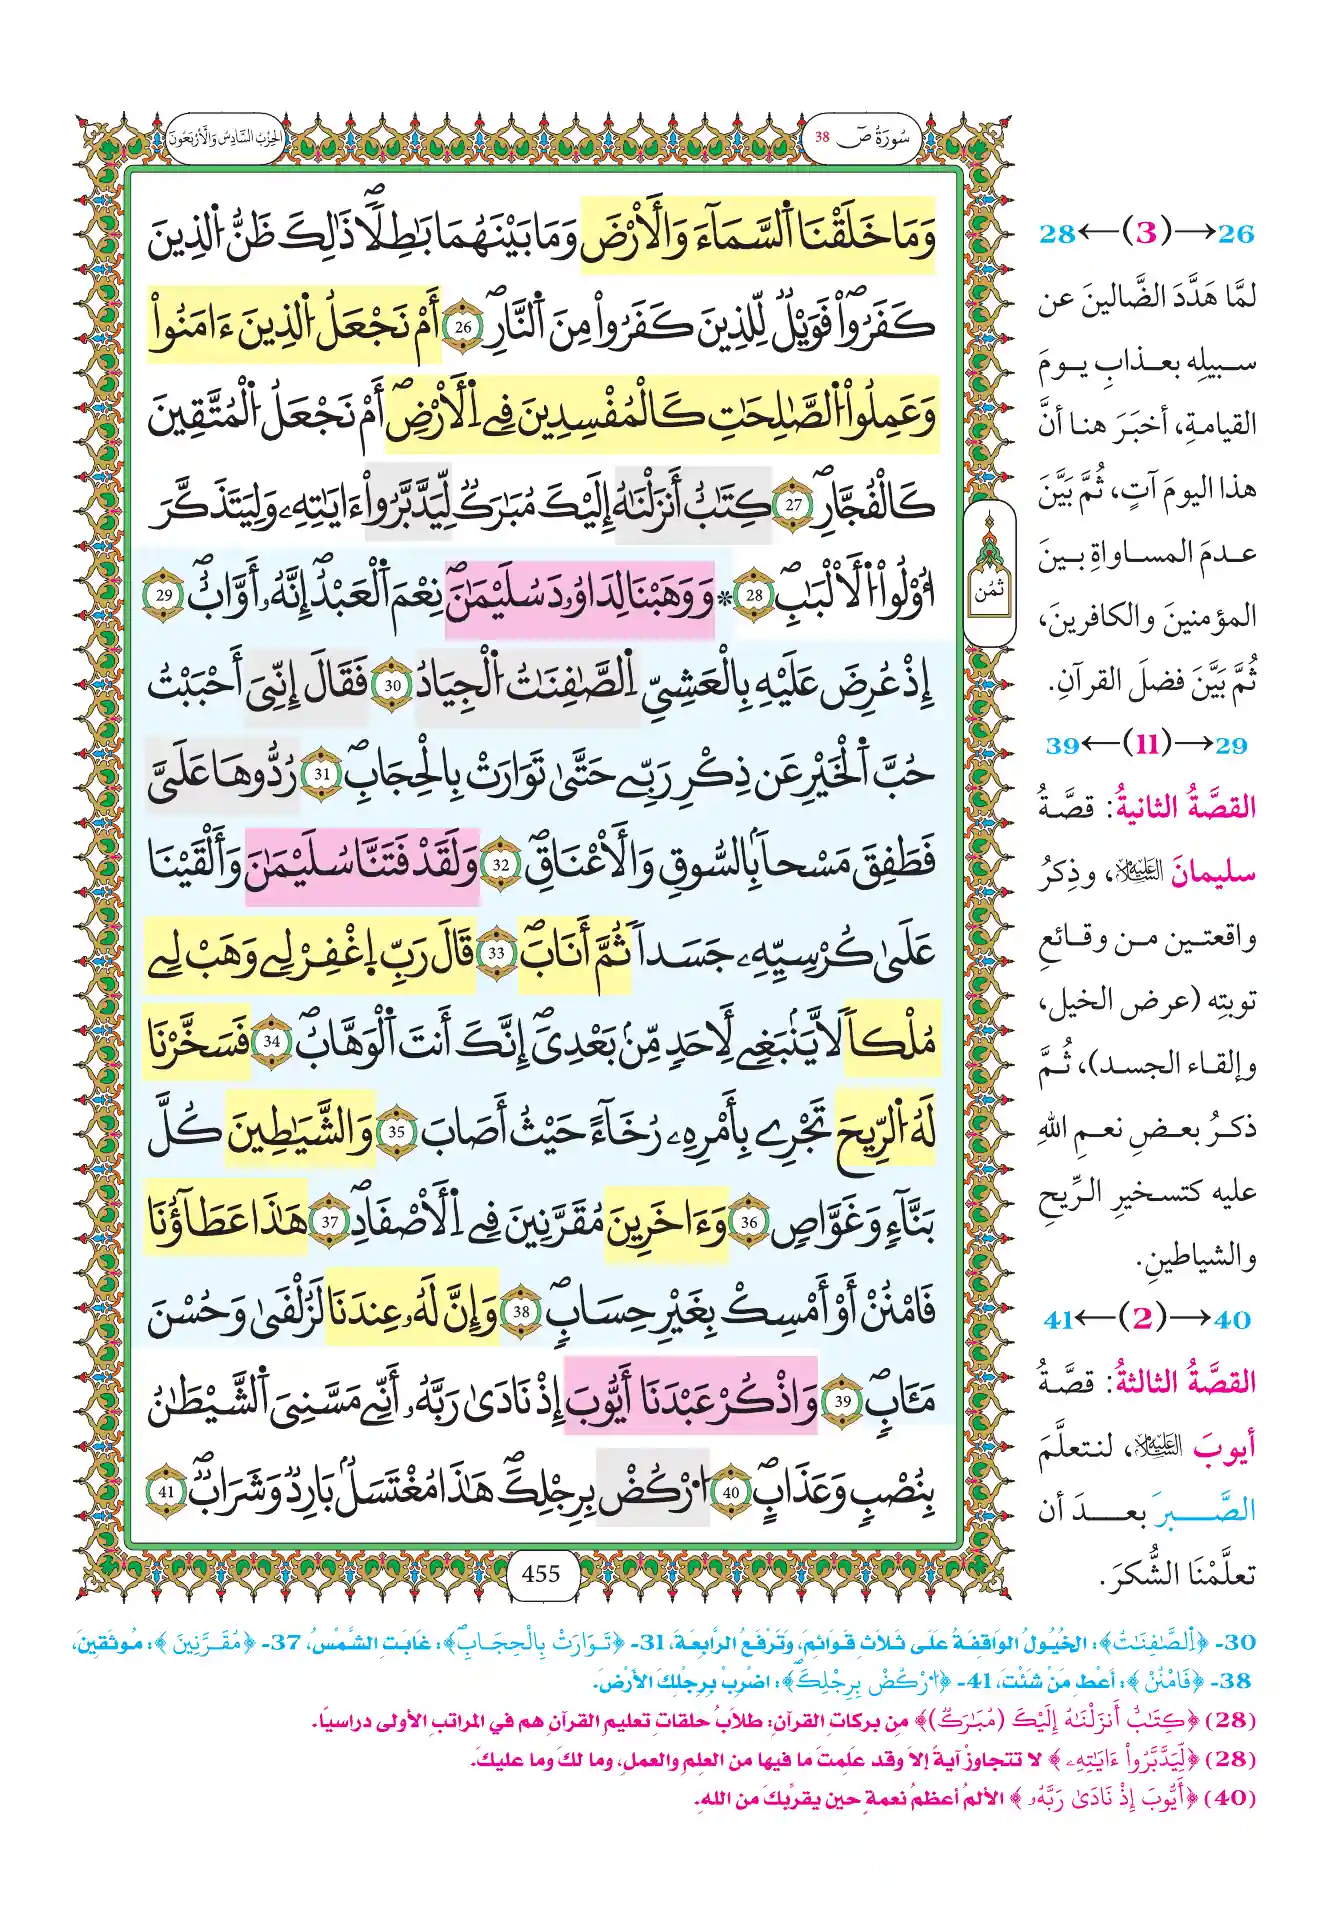 سُورَةُ صٓ 38
الحِزْبُ السَّادِسُ وَالْأَرْبَعُونَ
وَمَا خَلَقْنَا اَ۬لسَّمَآءَ وَالْأَرْضَ وَمَا بَيْنَهُمَا بَٰطِلاٗۖ ذَٰلِكَ ظَنُّ اُ۬لذِينَ
كَفَرُواْۖ فَوَيْلٞ لِّلذِينَ كَفَرُواْ مِنَ اَ۬لنَّارِۖ 26 أَمْ نَجْعَلُ اُ۬لذِينَ ءَامَنُواْ
وَعَمِلُواْ اُ۬لصَّٰلِحَٰتِ كَالْمُفْسِدِينَ فِے اِ۬لْأَرْضِۖ أَمْ نَجْعَلُ اُ۬لْمُتَّقِينَ
كَالْفُجَّارِۖ 27 كِتَٰبٌ أَنزَلْنَٰهُ إِلَيْكَ مُبَٰرَكٞ لِّيَدَّبَّرُواْ ءَايَٰتِهِۦ وَلِيَتَذَكَّرَ
أُوْلُواْ اُ۬لْأَلْبَٰبِۖ 28 * وَوَهَبْنَا لِدَاوُۥدَ سُلَيْمَٰنَۖ نِعْمَ اَ۬لْعَبْدُۖ إِنَّهُۥٓ أَوَّابٌۖ 29
إِذْ عُرِضَ عَلَيْهِ بِالْعَشِيِّ اِ۬لصَّٰفِنَٰتُ اُ۬لْجِيَادُ 30 فَقَالَ إِنِّيَ أَحْبَبْتُ
حُبَّ اَ۬لْخَيْرِ عَن ذِكْرِ رَبِّے حَتَّىٰ تَوَارَتْ بِالْحِجَابِۖ 31 رُدُّوهَا عَلَيَّ
فَطَفِقَ مَسْحاَۢ بِالسُّوقِ وَالْأَعْنَاقِۖ 32 وَلَقَدْ فَتَنَّا سُلَيْمَٰنَ وَأَلْقَيْنَا
عَلَىٰ كُرْسِيِّهِۦ جَسَداٗ ثُمَّ أَنَابَۖ 33 قَالَ رَبِّ اِ۪غْفِرْ لِے وَهَبْ لِے
مُلْكاٗ لَّا يَنۢبَغِے لِأَحَدٖ مِّنۢ بَعْدِيَۖ إِنَّكَ أَنتَ اَ۬لْوَهَّابُۖ 34 فَسَخَّرْنَا
لَهُ اُ۬لرِّيحَ تَجْرِے بِأَمْرِهِۦ رُخَآءً حَيْثُ أَصَابَ 35 وَالشَّيَٰطِينَ كُلَّ
بَنَّآءٖ وَغَوَّاصٖ 36 وَءَاخَرِينَ مُقَرَّنِينَ فِے اِ۬لْأَصْفَادِۖ 37 هَٰذَا عَطَآؤُنَا
فَامْنُنْ أَوْ أَمْسِكْ بِغَيْرِ حِسَابٖۖ 38 وَإِنَّ لَهُۥ عِندَنَا لَزُلْفَىٰ وَحُسْنَ
مَـَٔابٖۖ 39 وَاذْكُرْ عَبْدَنَا أَيُّوبَ إِذْ نَادَىٰ رَبَّهُۥٓ أَنِّے مَسَّنِيَ اَ۬لشَّيْطَٰنُ
بِنُصْبٖ وَعَذَابٖۖ 40 اُ۟رْكُضْ بِرِجْلِكَۖ هَٰذَا مُغْتَسَلُۢ بَارِدٞ وَشَرَابٞۖ 41
ثمُن
455
26→(3)←28
لمَّا هَدَّدَ الضَّالينَ عن
سبيلِه بعذابِ يومَ
القيامةِ، أخبَرَ هنا أنَّ
هذا اليومَ آتٍ، ثُمَّ بَيَّنَ
عدمَ المساواةِ بينَ
المؤمنينَ والكافرينَ،
ثُمَّ بَيَّنَ فضلَ القرآنِ.
29→(11)←39
القصَّةُ الثانيةُ: قصَّةُ
سليمانَ عليه السلام، وذِكرُ
واقعتين من وقائعِ
توبتِه (عرض الخيل،
وإلقاء الجسد)، ثُمَّ
ذكرُ بعضِ نعمِ اللهِ
عليه كتسخيرِ الرِّيحِ
والشياطينِ.
40→(2)←41
القصَّةُ الثالثةُ: قصَّةُ
أيوبَ عليه السلام، لنتعلَّمَ
الصَّبرَ بعدَ أن
تعلَّمْنَا الشُّكرَ.
30- ﴿اِ۬لصَّٰفِنَٰتُ﴾: الخُيُولُ الوَاقِفَةُ عَلَى ثَلَاثِ قَوَائِمَ، وَتَرْفَعُ الرَّابِعَةَ، 31- ﴿تَوَارَتْ بِالْحِجَابِۖ﴾: غَابَتِ الشَّمْسُ، 37- ﴿مُقَرَّنِينَ﴾: مُوثَقِينَ،
38- ﴿فَامْنُنْ﴾: أَعْطِ مَنْ شَئْتَ، 41- ﴿اُ۟رْكُضْ بِرِجْلِكَۖ﴾: اضْرِبْ بِرِجْلِكَ الأَرْضَ.
(28) ﴿كِتَٰبٌ أَنزَلْنَٰهُ إِلَيْكَ (مُبَٰرَكٞ)﴾ مِن بركاتِ القرآنِ: طلابُ حلقاتِ تعليمِ القرآنِ هم في المراتبِ الأولى دراسيًا.
(28) ﴿لِّيَدَّبَّرُواْ ءَايَٰتِهِۦ﴾ لا تتجاوزْ آيةً إلا وقد علِمتَ ما فيها من العلمِ والعملِ، وما لكَ وما عليكَ.
(40) ﴿أَيُّوبَ إِذْ نَادَىٰ رَبَّهُۥٓ﴾ الألمُ أعظمُ نعمةٍ حين يقرِّبكَ من اللهِ.